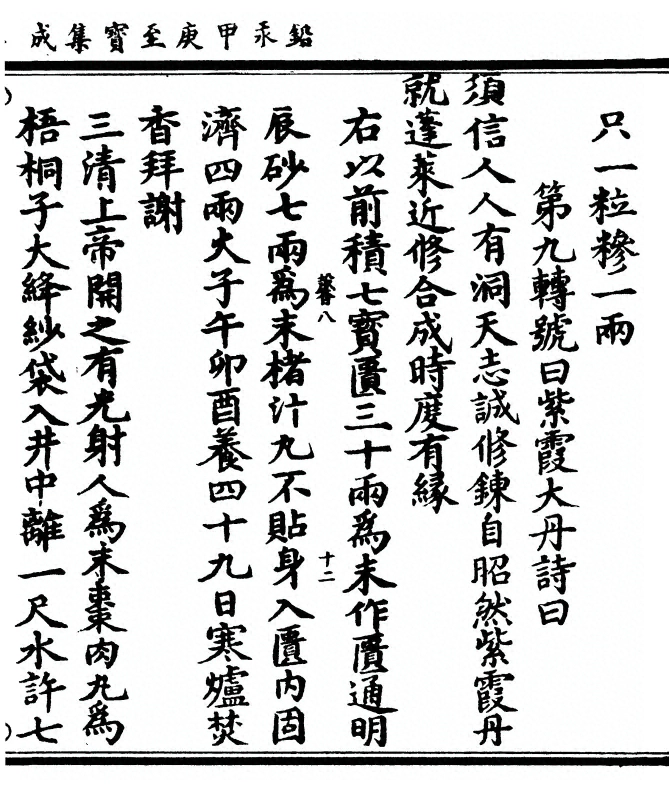 鉛汞甲庚至寶集成
只一粒糝一兩
第九轉號曰紫霞大丹詩曰
須信人人有洞天志誠修鍊自昭然紫霞丹
就蓬萊近修合成時度有縁
右以前積七寶匱三十兩爲末作匱通明
馨八 十二
辰砂七兩爲末楮汁丸不貼身入匱内固
濟四兩火子午卯酉養四十九日寒爐焚
香拜謝
三清上帝開之有光射人爲末棗肉丸爲
梧桐子大絳紗袋入井中離一尺水許七